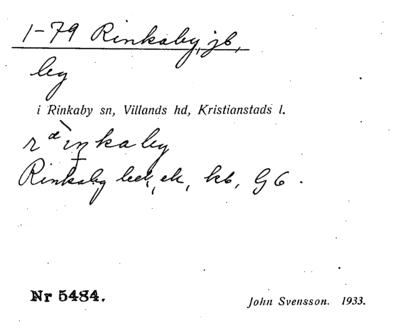 1-79 Rinkaby, jb,
by
i Rinkaby sn, Villands hd, Kristianstads l.
Rinkaby bed, ek, kb, G6.
Nr 5484.
John Svensson. 1933.